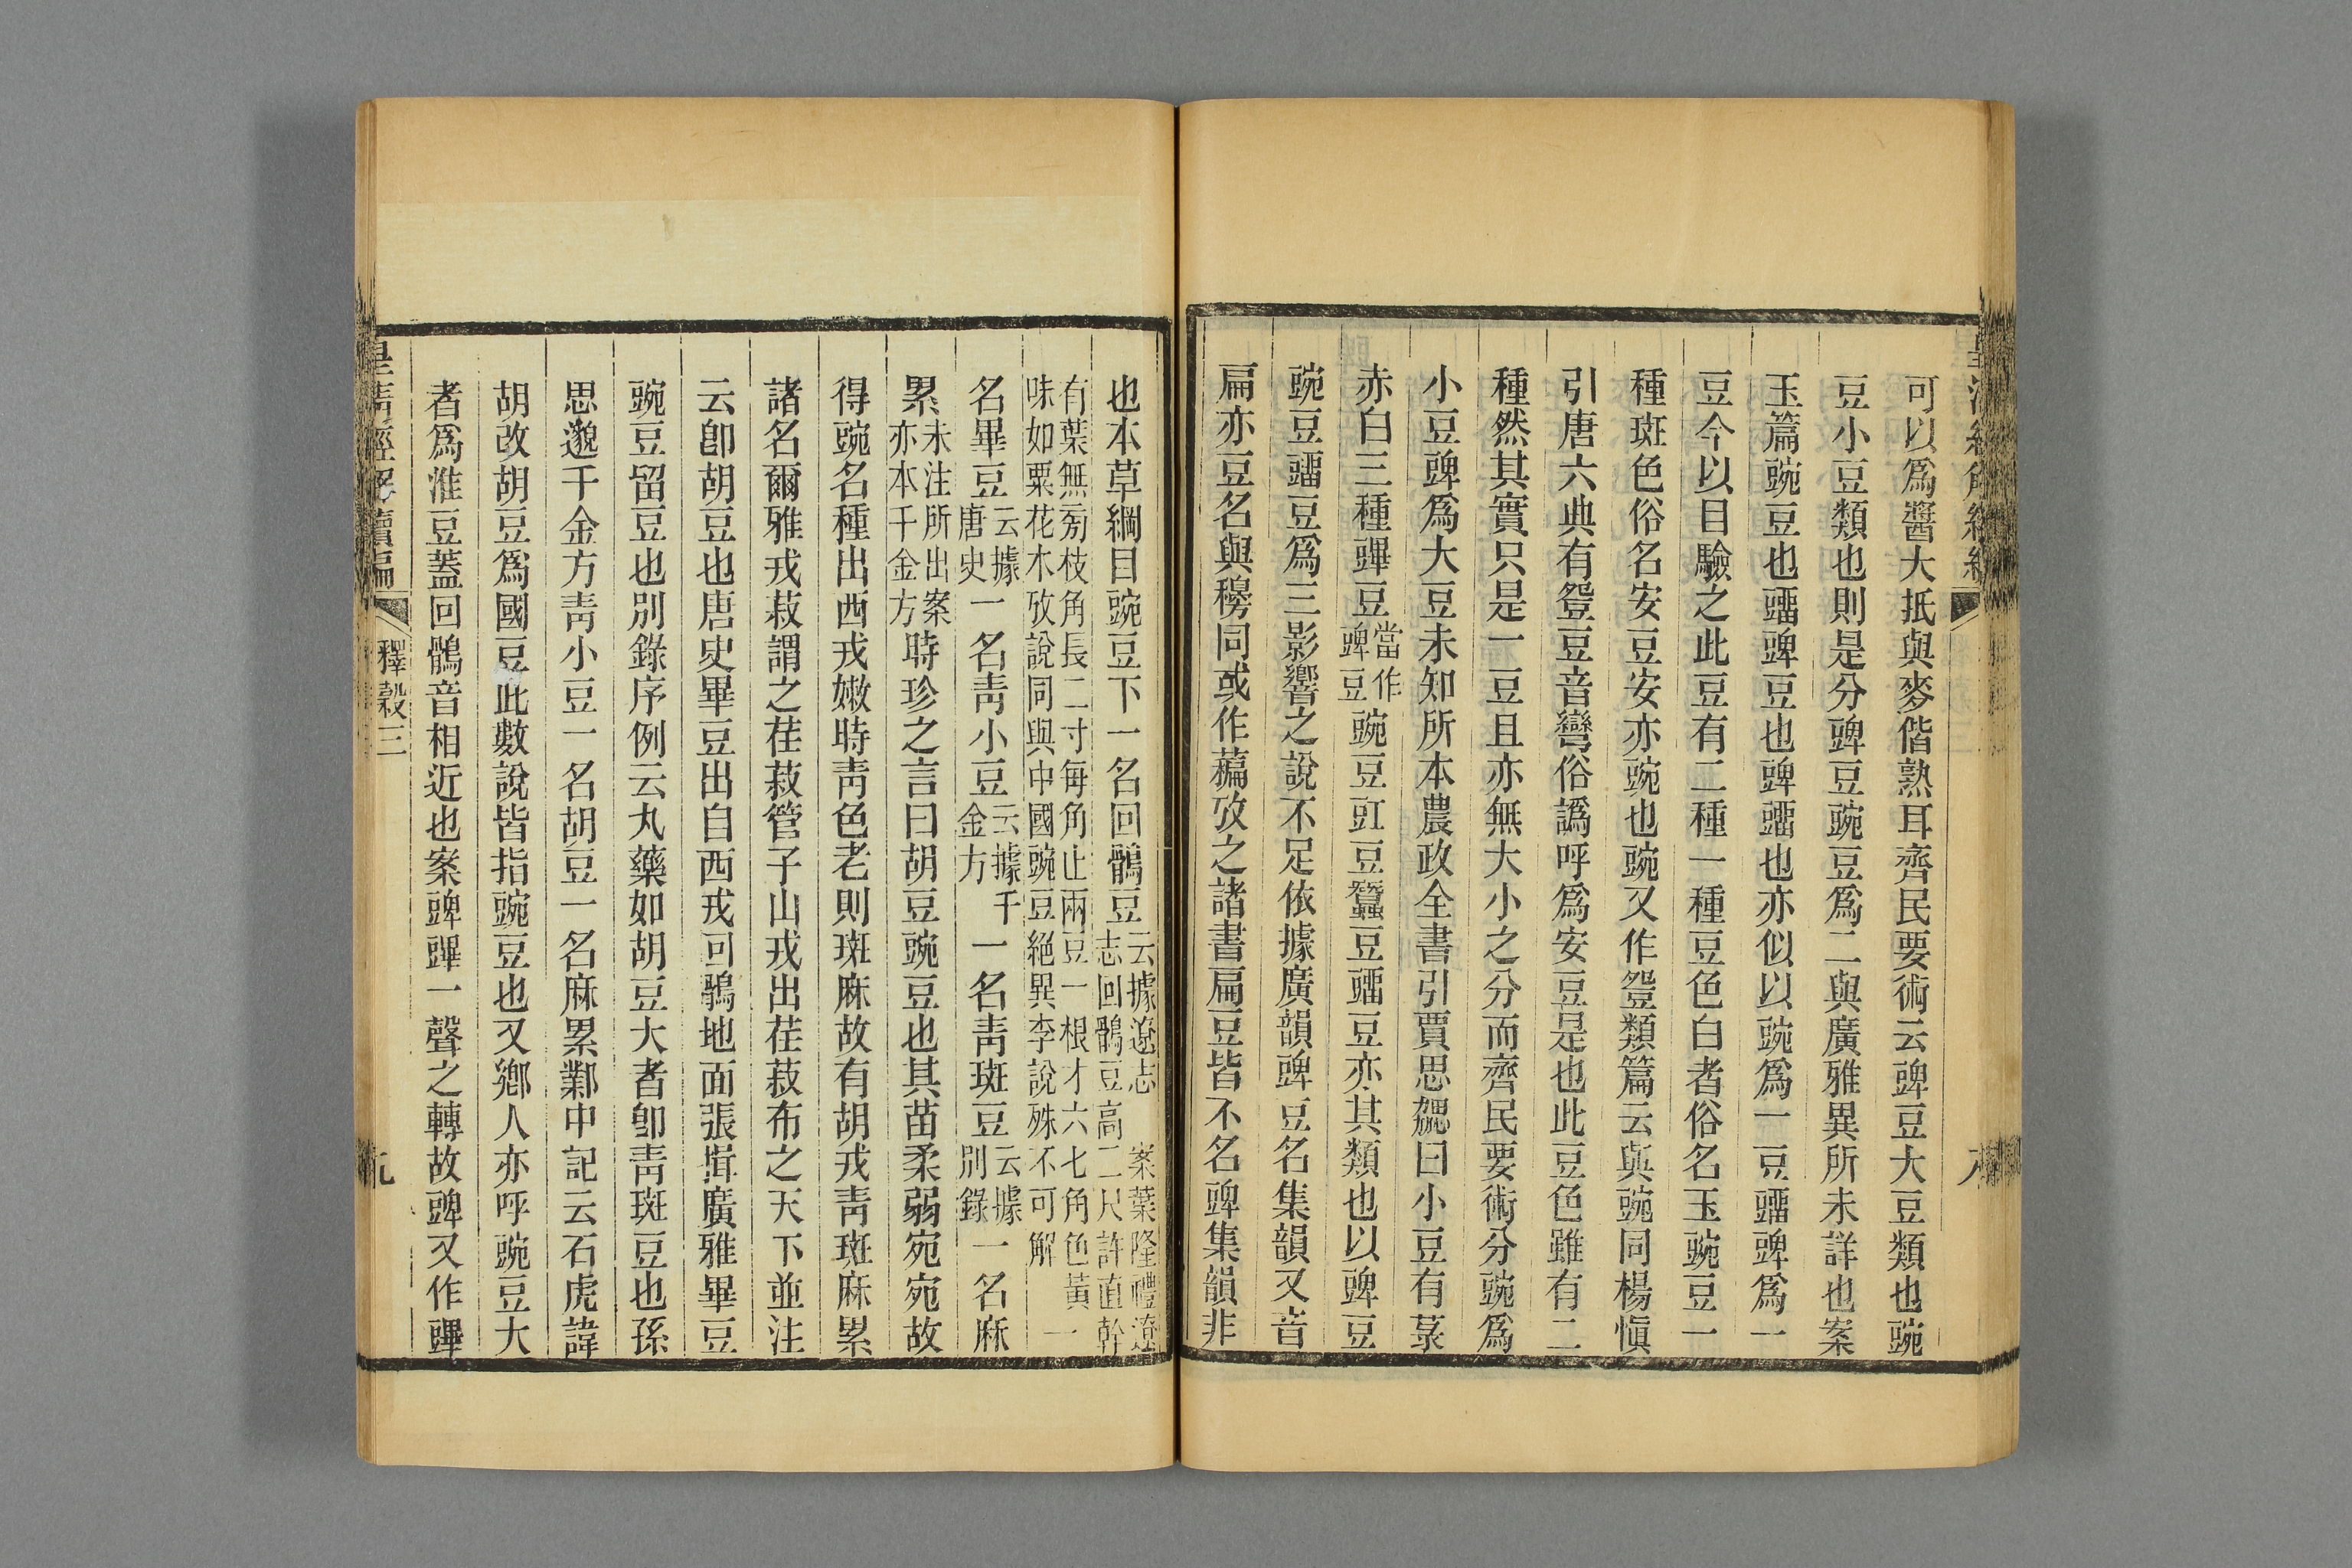 可以爲醬大抵與麥偕熟耳齊民要術云豍豆大豆類也豌
豆小豆類也則是分豍豆豌豆爲二與廣雅異所未詳也案
玉篇豌豆也䝁豍豆也豍䝁也亦似以豌爲一豆䝁豍爲一
豆今以目驗之此豆有二種一種豆色白者俗名玉豌豆一
種斑色俗名安豆安亦豌也豌又作䝂類篇云與豌同楊愼
引唐六典有䝂豆音彎俗譌呼爲安豆是也此豆色雖有二
種然其實只是一豆且亦無大小之分而齊民要術分豌爲
小豆豍爲大豆未知所本農政全書引賈思勰曰小豆有菉
赤白三種䟆豆當作
豍豆豌豆豇豆蠶豆䝁豆亦其類也以豍豆
豌豆䝁豆爲三影響之說不足依據廣韻豍豆名集韻又音
扁亦豆名與穆同或作藊攷之諸書扁豆皆不名豍集韻非
也本草綱目豌豆下一名回鶻豆云據遼志　案葉隆禮遼
志回鶻豆高二尺許直幹
有葉無㫄枝角長二寸每角止兩豆一根才六七角色黃一
味如栗花木攷說同與中國豌豆絕異李說殊不可解
名畢豆云據
唐史一名靑小豆云據千
金方一名靑斑豆云據
別錄一名麻
累未注所出案
亦本千金方時珍之言曰胡豆豌豆也其苗柔弱宛宛故
得豌名種出西戎嫩時靑色老則斑麻故有胡戎靑斑麻累
諸名爾雅戎菽謂之荏菽管子山戎出荏菽布之天下並注
云卽胡豆也唐史畢豆出自西戎回鶻地面張揖廣雅畢豆
豌豆留豆也別錄序例云丸藥如胡豆大者卽靑斑豆也孫
思邈千金方靑小豆一名胡豆一名麻累鄴中記云石虎諱
胡改胡豆爲國豆此數說皆指豌豆也又鄉人亦呼豌豆大
者爲淮豆蓋回鶻音相近也案豍䟆一聲之轉故豍又作䟆
皇清經解續編
釋穀三
九